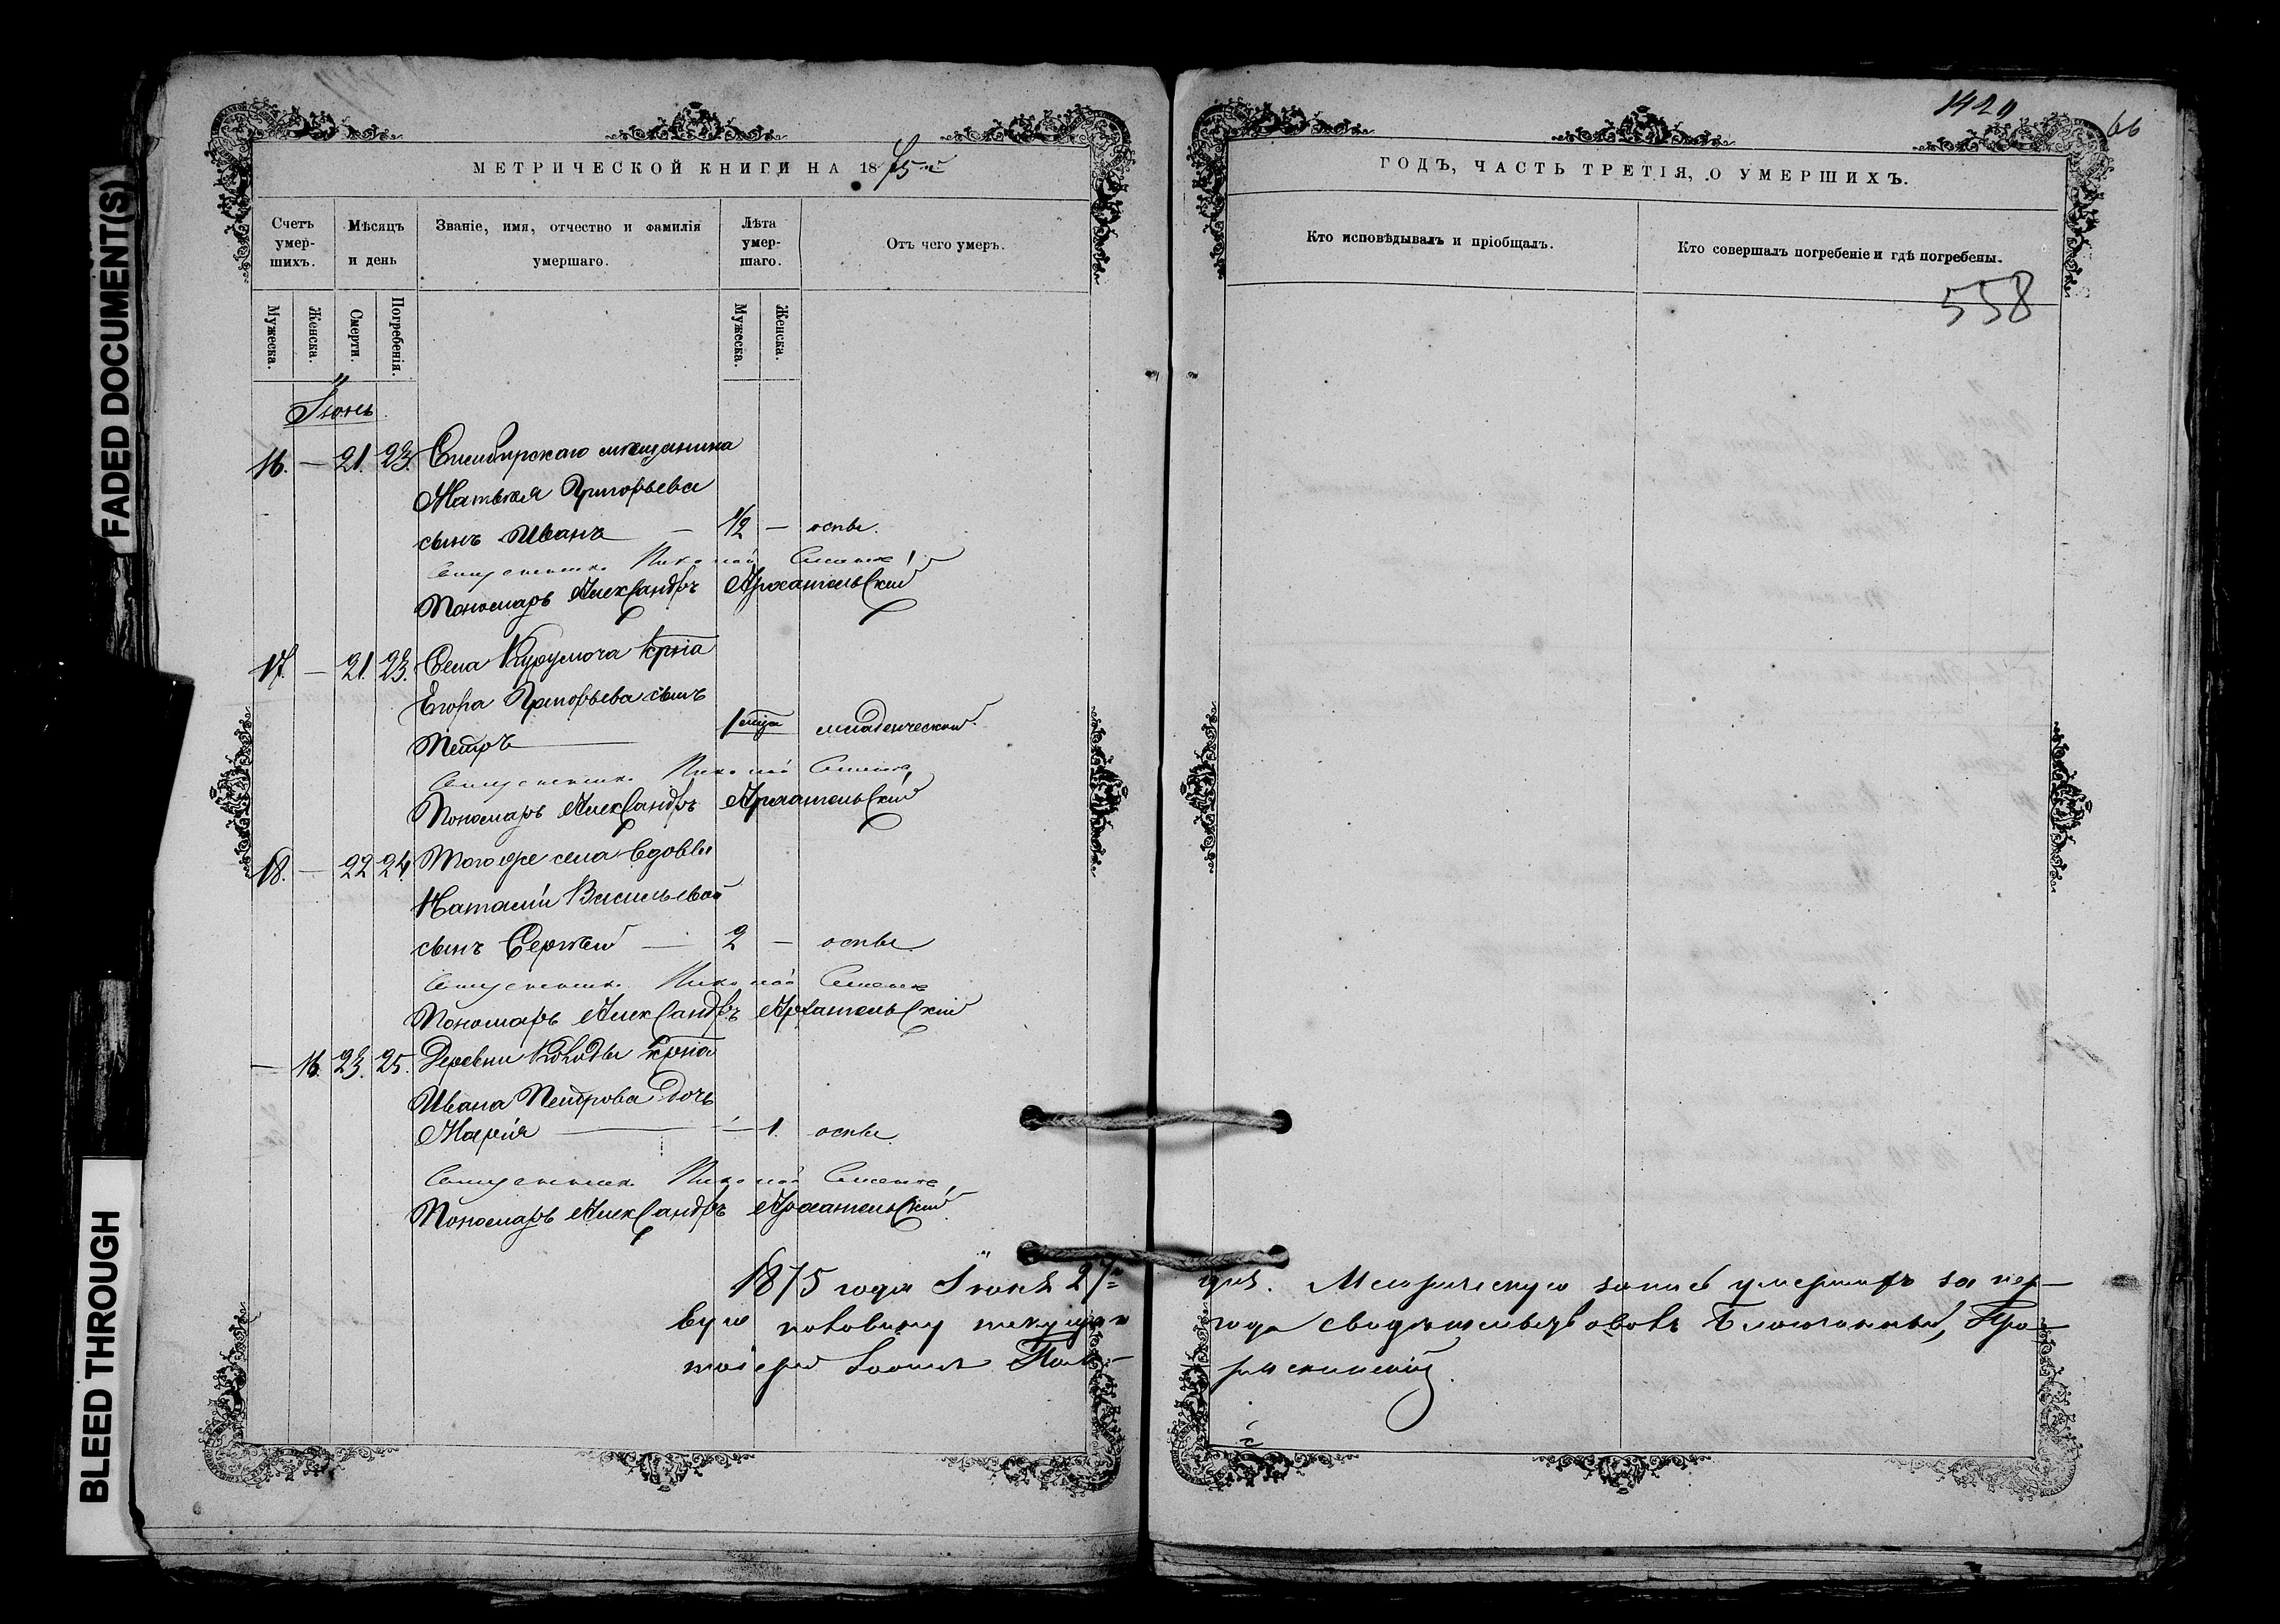 FADED DOCUMENT(S)
BLEED THROUGH
МЕТРИЧЕСКОЙ КНИГИ НА 1875-й
Счетъ умер-шихъ.
Мѣсяцъ и день
Званіе, имя, отчество и фамилія умершаго.
Лѣта умер-шаго.
Отъ чего умеръ.
Мужеска.
Женска.
Смерти.
Погребенія.
Мужеска.
Женска.
Іюнь
16. — 21. 23. Симбирскаго мѣщанина
Матвѣя Григорьева
сынъ Иванъ — 1/2 — оспы.
Священникъ Николай
Пономарь Александръ Архангельскій
17. — 21. 23. Села Курумоча крна
Егора Григорьева сынъ
Петръ — 1 мца младенческой
Священникъ Николай
Пономарь Александръ Архангельскій
18. — 22 24. Тогоже села вдовы
Наталіи Васильевой
сынъ Сергѣй — 2 — оспы
Священникъ Николай
Пономарь Александръ Архангельскій
— 16. 23. 25. Деревни крна
Ивана Петрова дочь
Марія — — 1. оспы.
Священникъ Николай
Пономарь Александръ Архангельскій
1875 года Іюня 27-
вую половину текущаго
тоіерей
1420
66
ГОДЪ, ЧАСТЬ ТРЕТІЯ, О УМЕРШИХЪ.
Кто исповѣдывалъ и пріобщалъ.
Кто совершалъ погребеніе и гдѣ погребены.
558
дня. Метрическую запись умершихъ за пер-
года свидѣтельствовалъ Благочинный, Про-